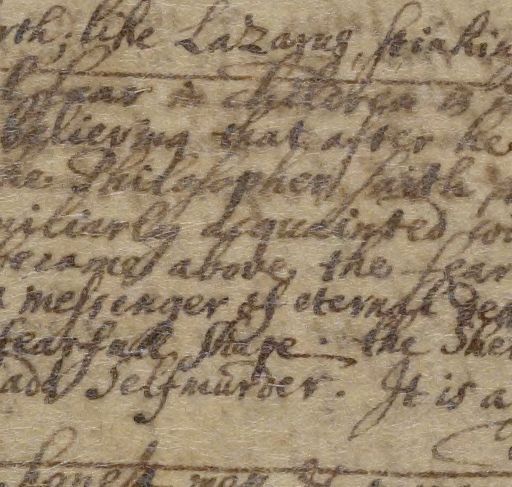 rth; like Lazarus, stinkin
fear in children is
believing that after he
he Philosopher saith
miliarly acquainted
became above the fear
messenger of eternal
fearfull shape. the
selfmurder. It is a
honest men